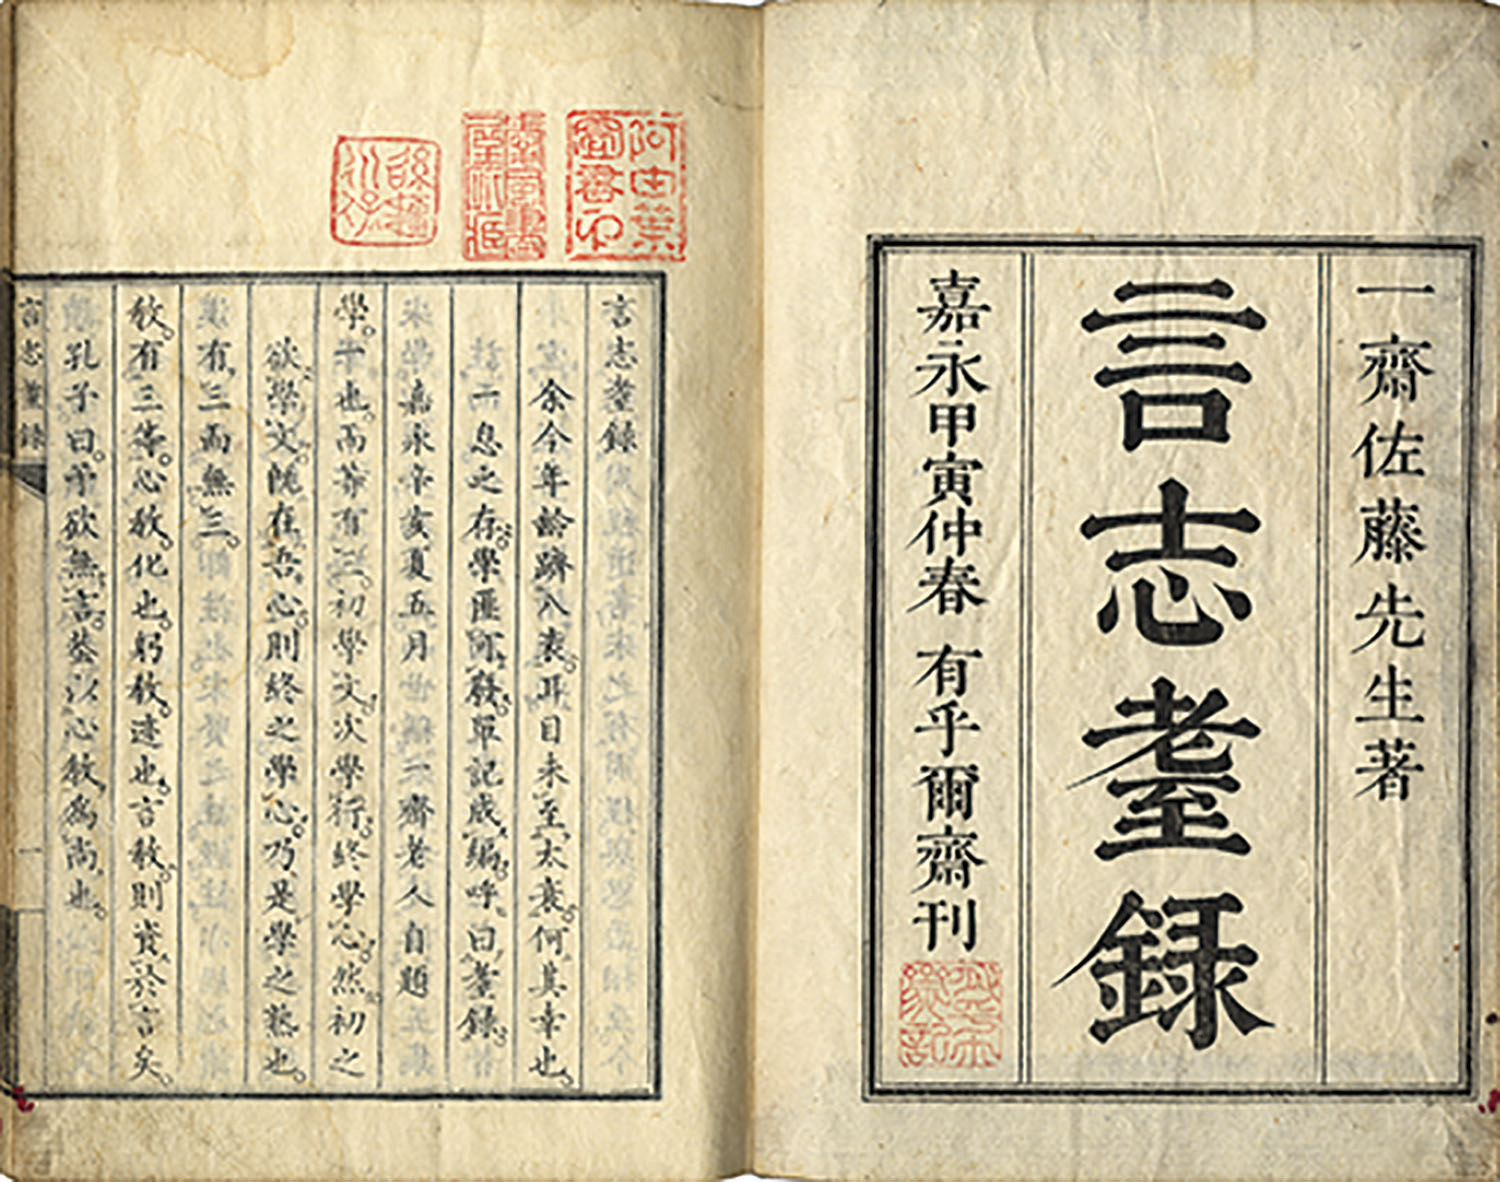 一齋佐藤先生著
言志耋録
嘉永甲寅仲春 有乎爾齋刊
言志耋録
余今年齡躋八袠。耳目未至太衰。何其幸也。
一息之存。學匪可廢。單記成編。呼曰耋録。
嘉永辛亥夏五月 一齋老人自題
學。一也。而等有三。初學文。次學行。終學心。然初之
欲學文。既在吾心。則終之學心。乃是學之熟也。
有三而無三。
教。有三等。心教。化也。躬教。迹也。言教。則資於言矣。
孔子曰。予欲無言。蓋以心教爲尚也。
言志耋録
一